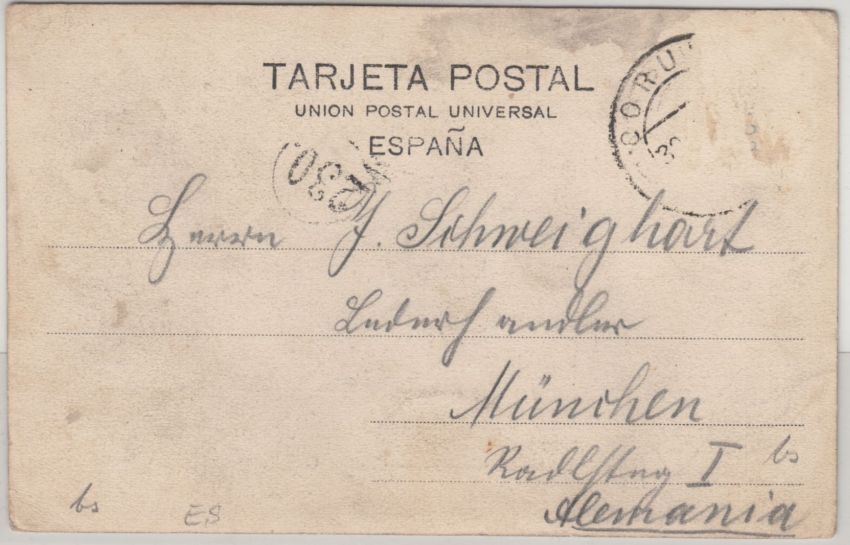 TARJETA POSTAL
UNION POSTAL UNIVERSAL
ESPAÑA
CORU
230
Herrn J. Schweighart
Lederhandler
München
Radlsteg I bs
Alemania
bs
ES